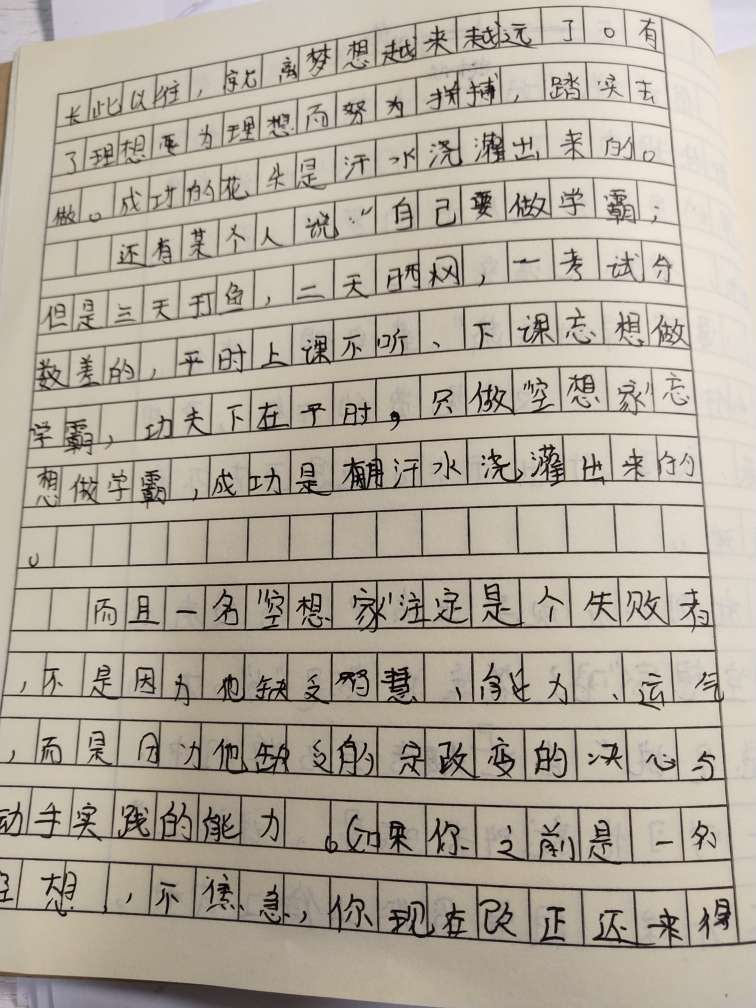 长此以往，就离梦想越来越远了。有
了理想要为理想而努力拼搏，踏实去
做。成功的花朵是汗水浇灌出来的。
还有某个人说：“自己要做学霸；
但是三天打鱼，二天晒网，一考试分
数差的，平时上课不听、下课忘想做
学霸，功夫下在平时，只做“空想家”忘
想做学霸，成功是用汗水浇灌出来的
。
而且一名“空想家”注定是个失败者
，不是因为他缺乏智慧、能力、运气
，而是因为他缺乏的是改变的决心与
动手实践的能力。如果你之前是一名
空想，，不焦急，你现在改正还来得